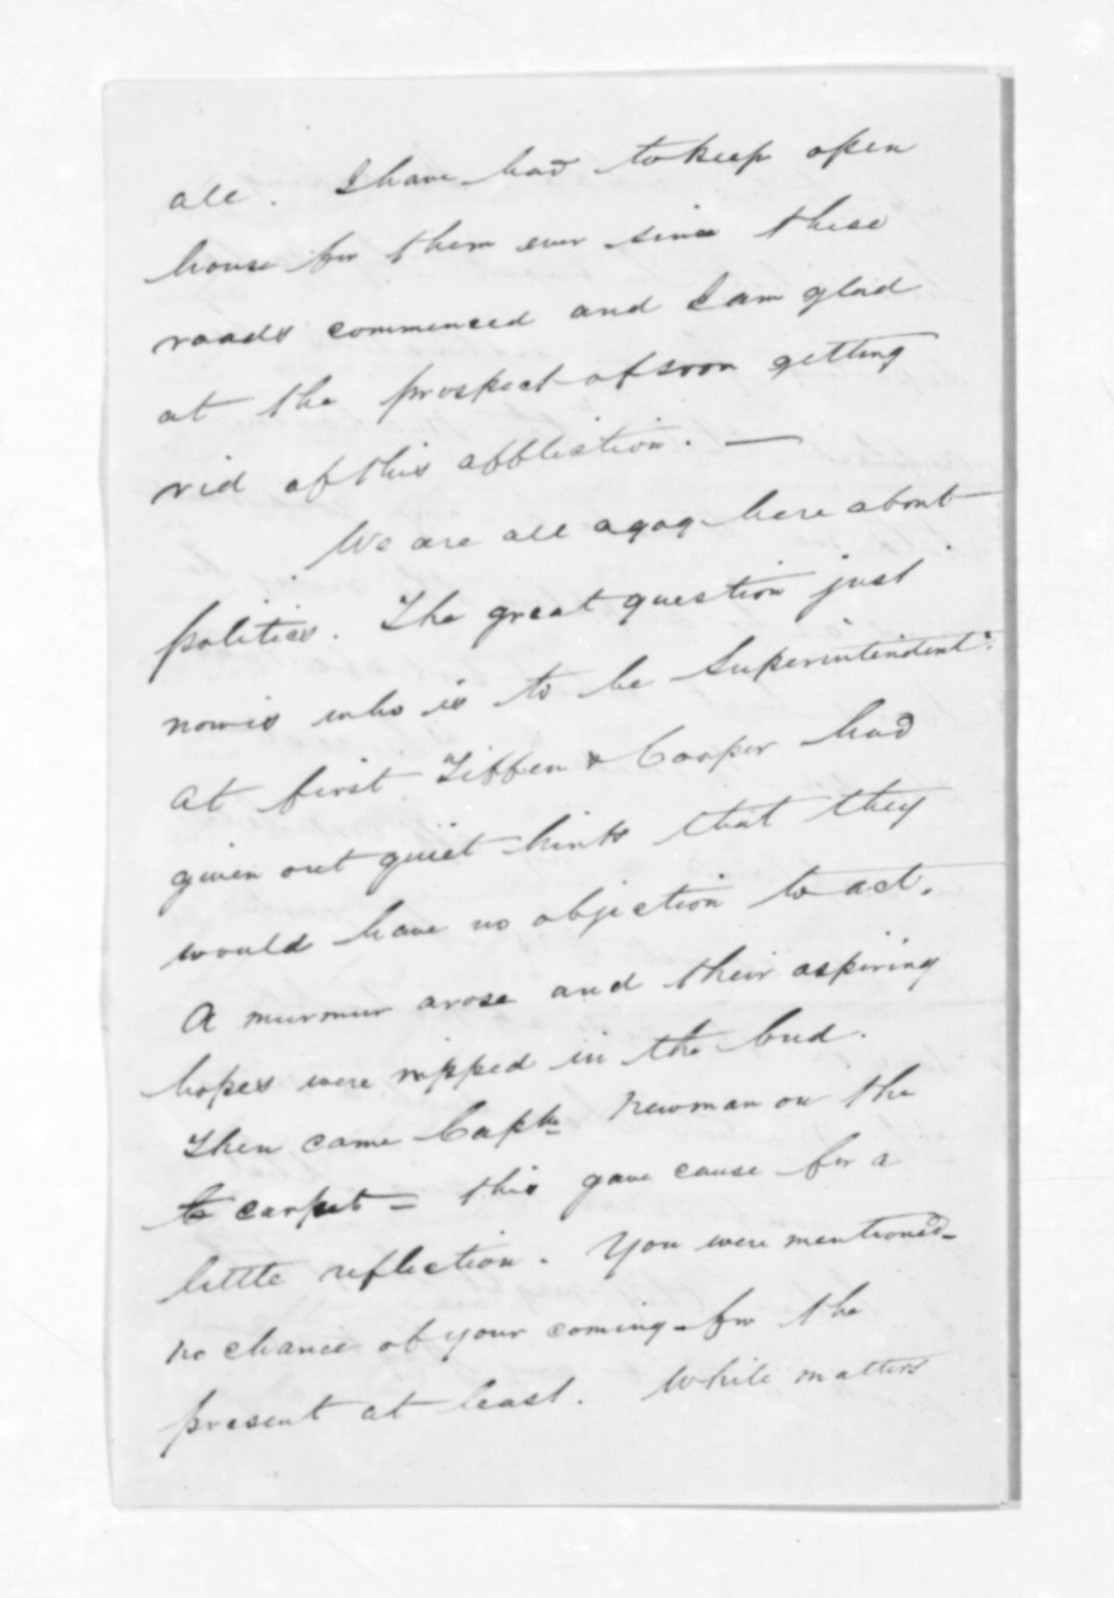 all. I have had to keep open
house for them ever since these
roads commenced and I am glad
at the prospect of soon getting
rid of this affliction. —
We are all agog here about
politics. The great question just
now is who is to be Superintendent.
At first Tiffen & Cooper had
given out quiet hints that they
would have no objection to act.
A murmur arose and their aspiring
hopes were nipped in the bud.
Then came Captn Newman on the
to carpet = this gave cause for a
little reflection. You were mentioned —
no chance of your coming for the
present at least. While matters